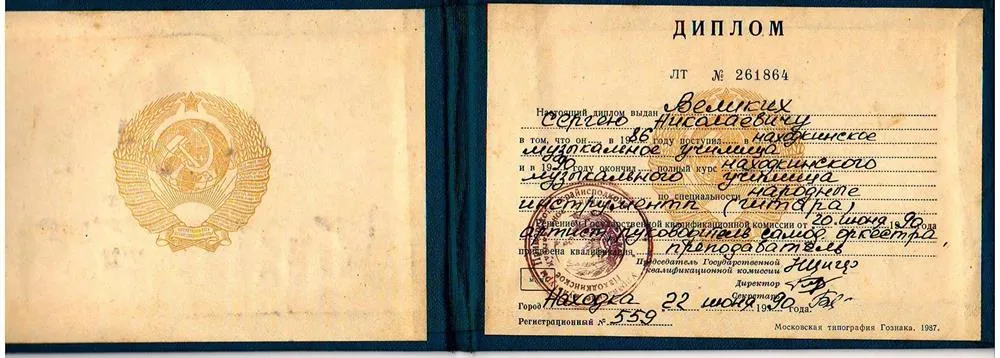 ДИПЛОМ
ЛТ № 261864
Настоящий диплом выдан Великих
Сергею Николаевичу
в том, что он в 1986 году поступил в находкинское
музыкальное училище
и в 1990 году окончил полный курс находкинского
музыкального училища
по специальности народные
инструменты (гитара)
Решением Государственной квалификационной комиссии от 20 июня 1990 года
артист, руководитель самод. оркестра,
присвоена квалификация преподаватель
Председатель Государственной
квалификационной комиссии
Директор
Секретарь
Город Находка 22 июня 1990 года.
Регистрационный № 559
Московская типография Гознака. 1987.